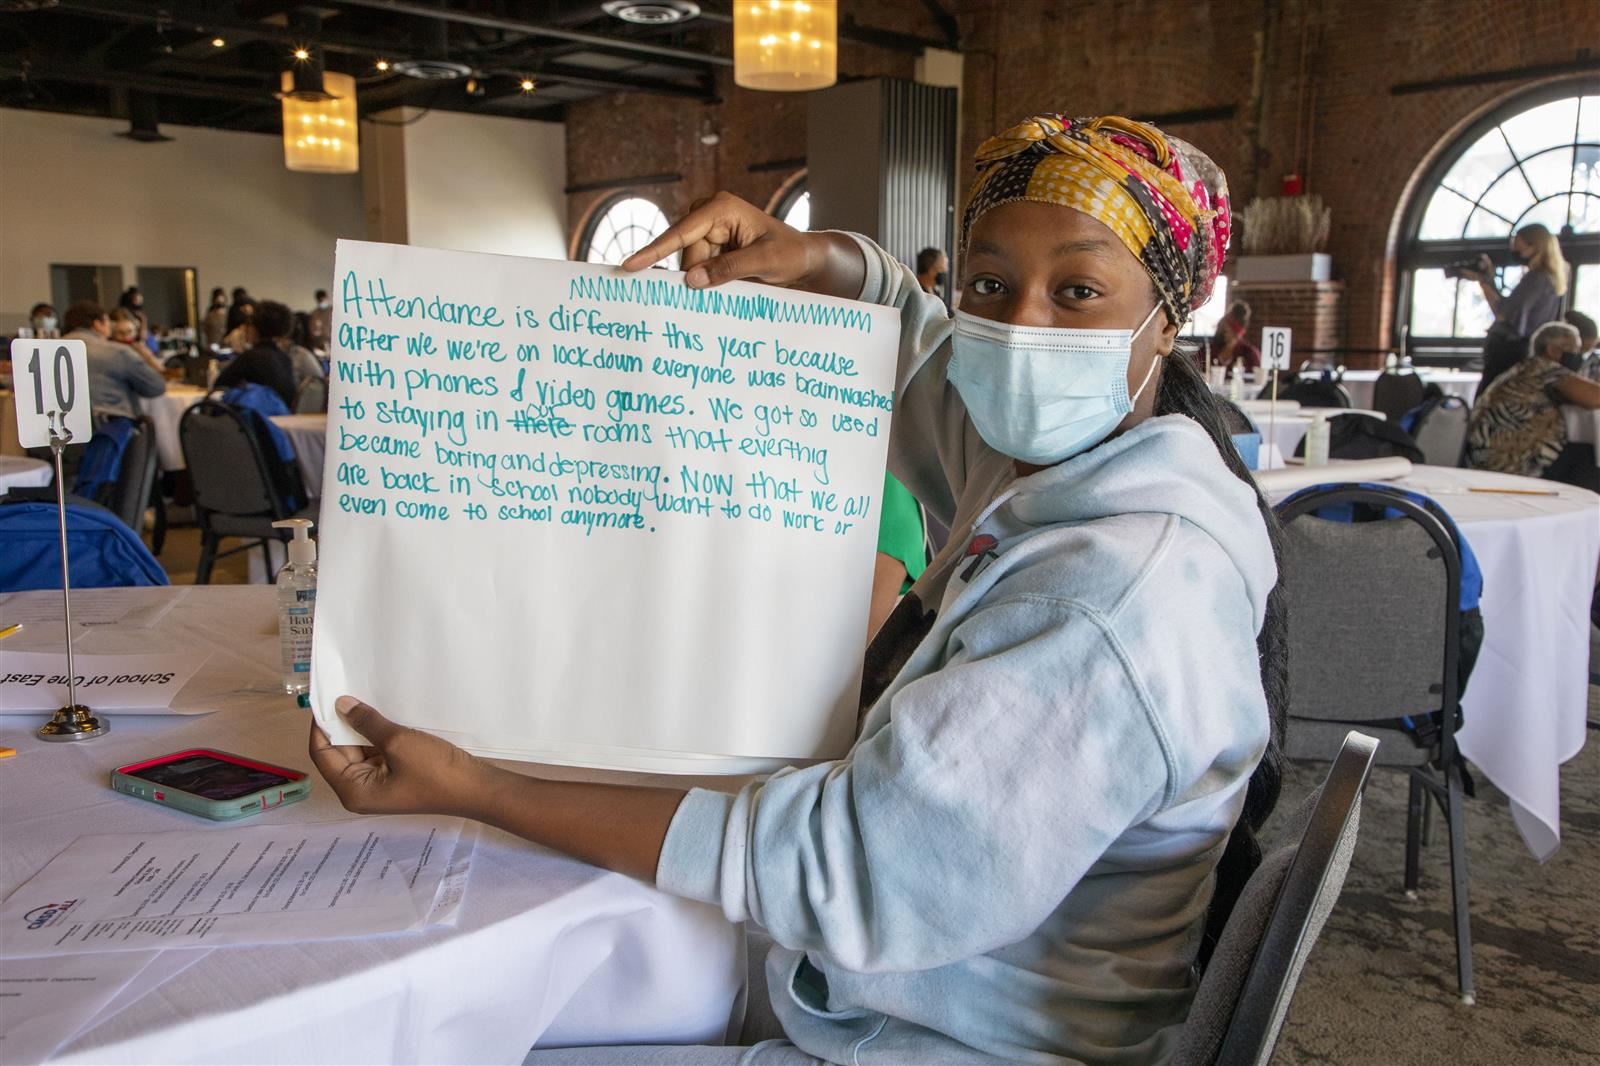 Attendance is different this year because
after we we're on lockdown everyone was brainwashed
with phones & video games. We got so used
to staying in there our rooms that everthig
became boring and depressing. Now that we all
are back in school nobody want to do work or
even come to school anymore.
10
16
School of One East
Han
San